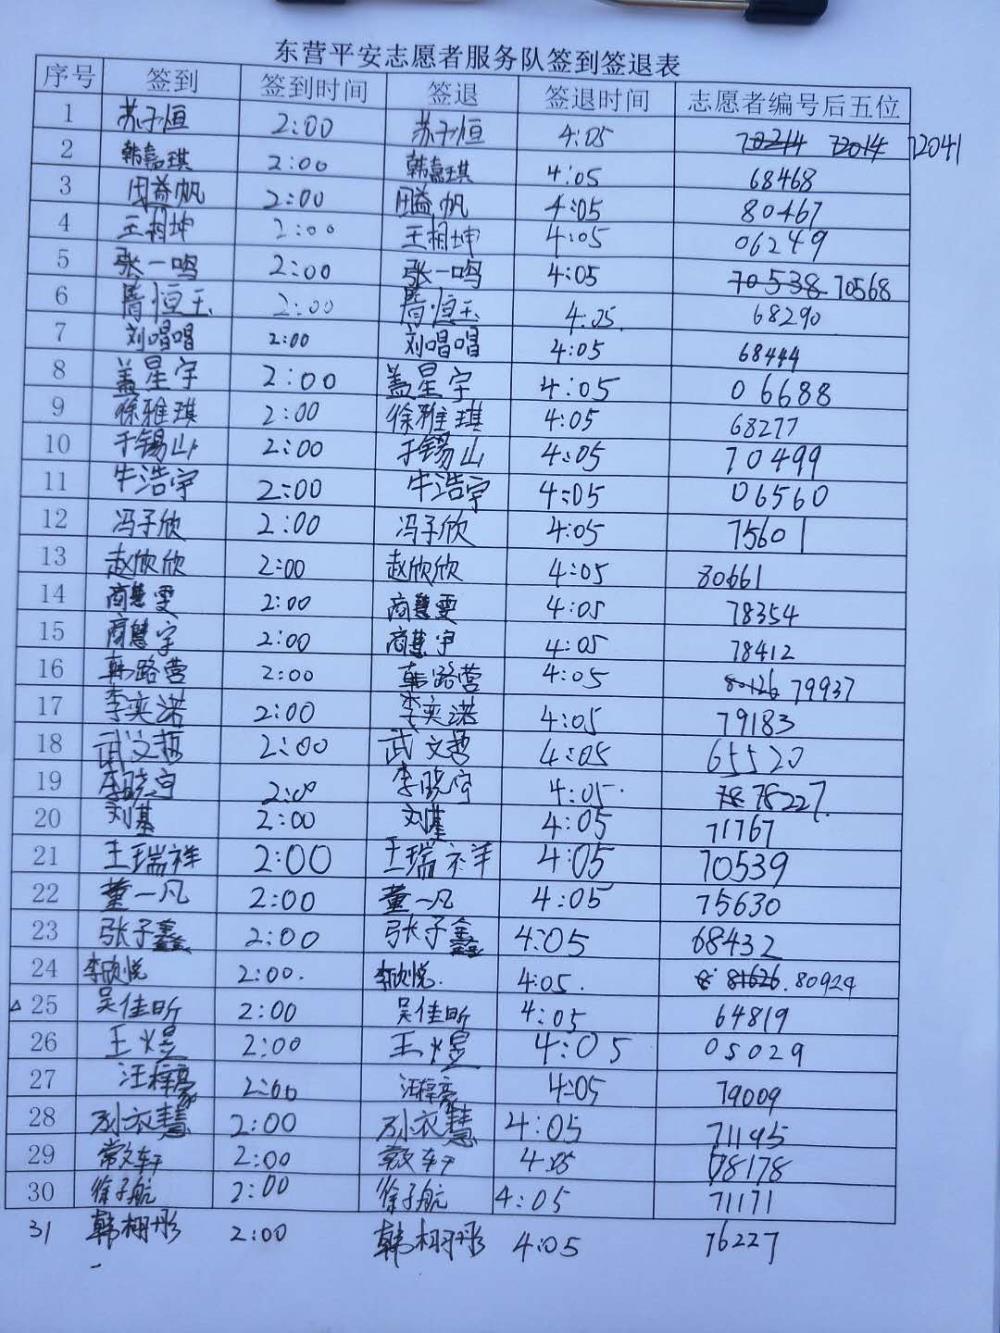 东营平安志愿者服务队签到签退表
序号 签到 签到时间 签退 签退时间 志愿者编号后五位
1 苏子恒 2:00 苏子恒 4:05 70214 72014 72041
2 韩嘉琪 2:00 韩嘉琪 4:05 68468
3 田益帆 2:00 田益帆 4:05 80467
4 王相坤 2:00 王相坤 4:05 06249
5 张一鸣 2:00 张一鸣 4:05 70538 70568
6 恒玉 2:00 恒玉 4:05 68290
7 刘唱唱 2:00 刘唱唱 4:05 68444
8 盖星宇 2:00 盖星宇 4:05 06688
9 徐雅琪 2:00 徐雅琪 4:05 68277
10 于锡山 2:00 于锡山 4:05 70499
11 牛浩宇 2:00 牛浩宇 4:05 06560
12 冯子欣 2:00 冯子欣 4:05 75601
13 赵欣欣 2:00 赵欣欣 4:05 80661
14 商慧雯 2:00 商慧雯 4:05 78354
15 商慧宇 2:00 商慧宇 4:05 78412
16 韩路营 2:00 韩路营 4:05 80126 79937
17 李奕诺 2:00 李奕诺 4:05 79183
18 武文哲 2:00 武文哲 4:05 65520
19 李晓宇 2:00 李晓宇 4:05 78 78227
20 刘基 2:00 刘基 4:05 71767
21 王瑞祥 2:00 王瑞祥 4:05 70539
22 董一凡 2:00 董一凡 4:05 75630
23 张子鑫 2:00 张子鑫 4:05 68432
24 李欣悦 2:00. 李欣悦. 4:05. 8 81626.80924
25 吴佳昕 2:00 吴佳昕 4:05 64819
26 王煜 2:00 王煜 4:05 05029
27 汪梓豪 2:00 汪梓豪 4:05 79009
28 孙衣慧 2:00 孙衣慧 4:05 71195
29 常文轩 2:00 常文轩 4:05 78178
30 徐子航 2:00 徐子航 4:05 71171
31 韩栩彤 2:00 韩栩彤 4:05 76227